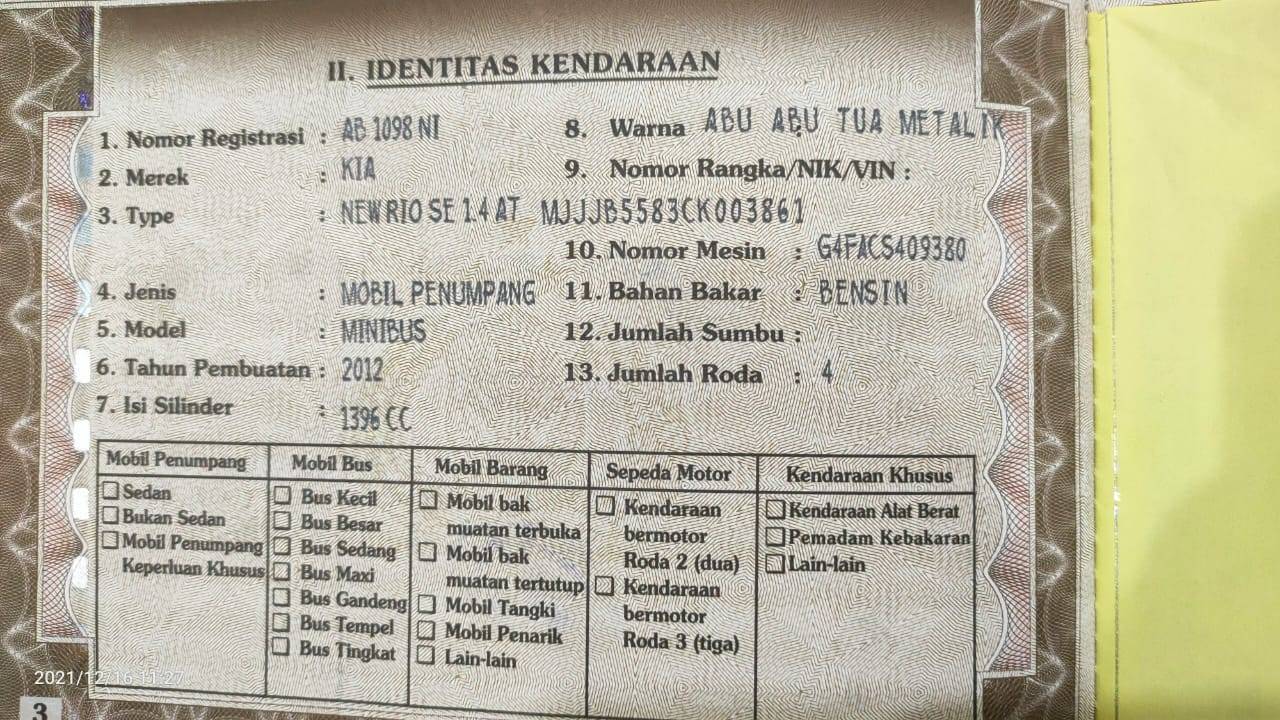 II. IDENTITAS KENDARAAN
1. Nomor Registrasi : AB 1098 NI
2. Merek : KIA
3. Type : NEW RIO SE 1.4 AT
4. Jenis : MOBIL PENUMPANG
5. Model : MINIBUS
6. Tahun Pembuatan : 2012
7. Isi Silinder : 1396 CC
8. Warna ABU ABU TUA METALIK
9. Nomor Rangka/NIK/VIN :
MJJJB5583CK003861
10. Nomor Mesin : G4FACS409380
11. Bahan Bakar : BENSIN
12. Jumlah Sumbu :
13. Jumlah Roda : 4
Mobil Penumpang
Sedan
Bukan Sedan
Mobil Penumpang
Keperluan Khusus
Mobil Bus
Bus Kecil
Bus Besar
Bus Sedang
Bus Maxi
Bus Gandeng
Bus Tempel
Bus Tingkat
Mobil Barang
Mobil bak
muatan terbuka
Mobil bak
muatan tertutup
Mobil Tangki
Mobil Penarik
Lain-lain
Sepeda Motor
Kendaraan
bermotor
Roda 2 (dua)
Kendaraan
bermotor
Roda 3 (tiga)
Kendaraan Khusus
Kendaraan Alat Berat
Pemadam Kebakaran
Lain-lain
2021/12/16 11:27
3